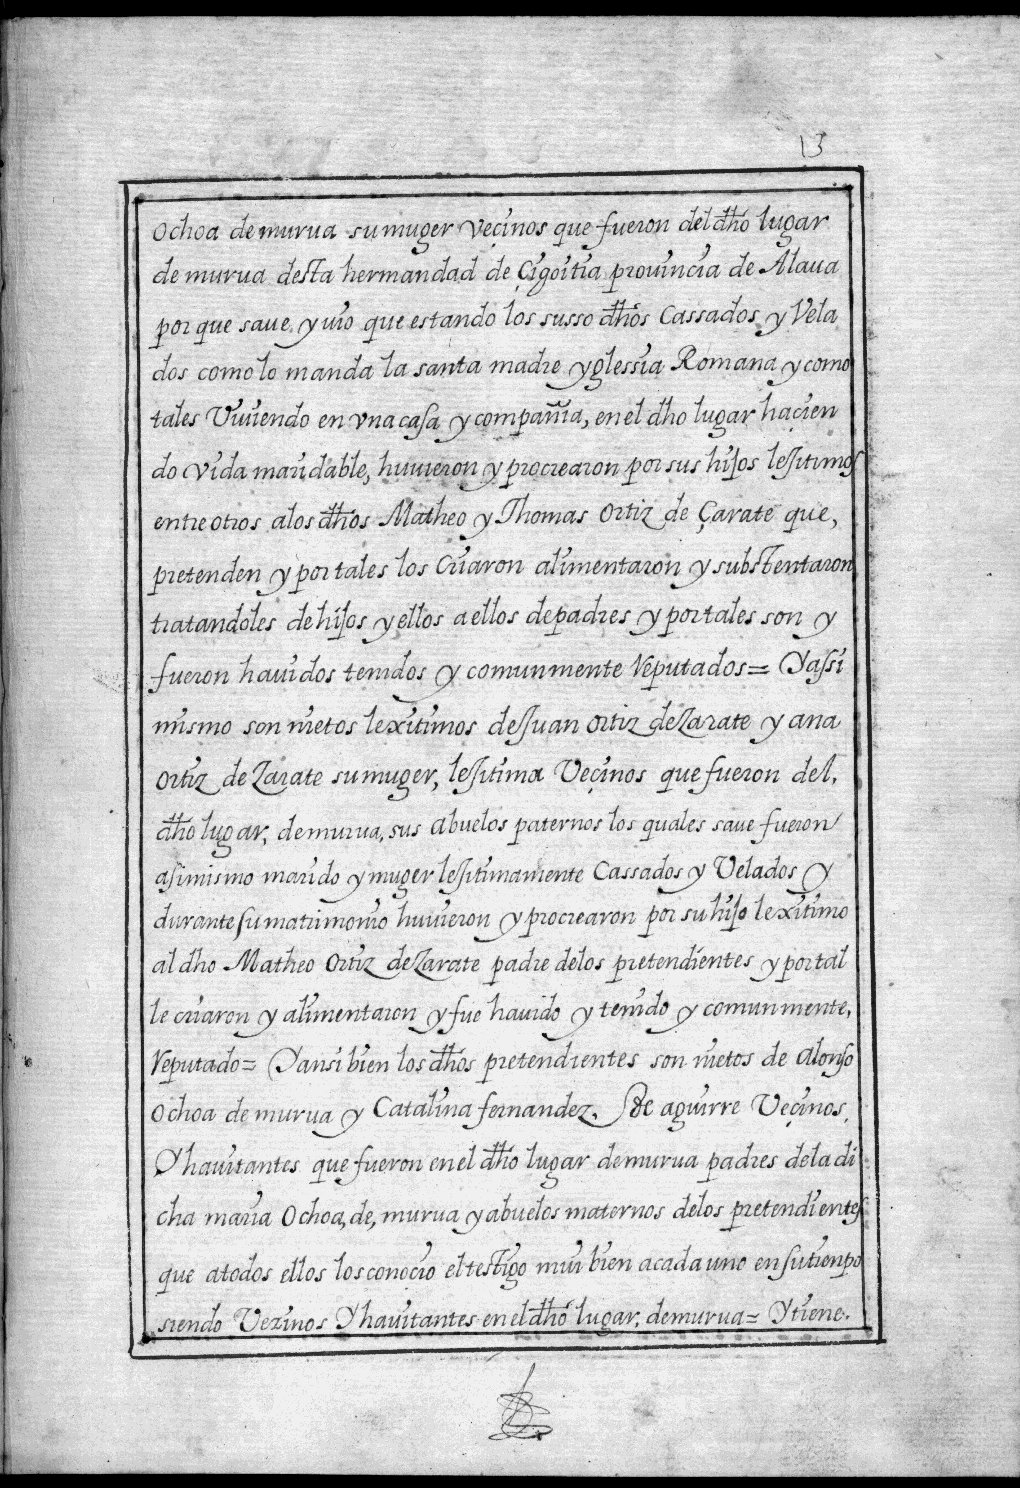 13
ochoa de murua su muger veçinos que fueron del dho lugar
de murua desta hermandad de Çigoitia prouincia de Alaua
por que saue, y uio que estando los susso dhos Cassados y Vela
dos como lo manda la santa madre yglessia Romana y como
tales Viuiendo en vna casa y compañia, en el dho lugar haçien
do vida maridable, huuieron y procrearon por sus hijos lejitimos
entre otros a los dhos Matheo y Thomas ortiz de Çarate que,
pretenden y por tales los criaron alimentaron y substentaron
tratandoles de hijos y ellos a ellos de padres y por tales son y
fueron hauidos tenidos y comunmente Reputados= Y assi
mismo son nietos lexitimos de Juan ortiz de Zarate y ana
ortiz de Zarate su muger, lejitima Veçinos que fueron del,
dho lugar, de murua, sus abuelos paternos los quales saue fueron
asimismo marido y muger lejitimamente Cassados y Velados y
durante su matrimonio huuieron y procrearon por su hijo lexitimo
al dho Matheo ortiz de Zarate padre de los pretendientes y por tal
le criaron y alimentaron y fue hauido y tenido y comunmente,
Reputado= Y ansi bien los dhos pretendientes son nietos de alonso
ochoa de murua y Catalina fernandez, de aguirre Veçinos
Y hauitantes que fueron en el dho lugar de murua padres de la di
cha maria ochoa, de, murua y abuelos maternos de los pretendientes
que a todos ellos los conocio el testigo mui bien a cada uno en su tienpo
siendo Vezinos Y hauitantes en el dho lugar, de murua= Y tiene.